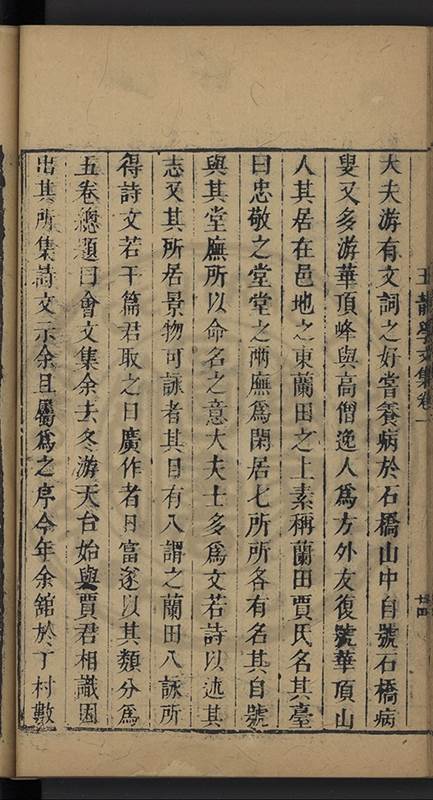 大夫游有文詞之好嘗養病於石橋山中自號石橋病
叟又多游華頂峰與高僧逸人爲方外友復號華頂山
人其居在邑地之東蘭田之上素稱蘭田賈氏名其臺
曰忠敬之堂堂之兩廡爲閑居七所所各有名其自號
與其堂廡所以命名之意大夫士多爲文若詩以述其
志又其所居景物可詠者其目有八謂之蘭田八詠所
得詩文若干篇君取之日廣作者日富遂以其類分爲
五卷總題曰會文集余去冬游天台始與賈君相識因
出其所集詩文示余且屬爲之序今年余舘於丁村數